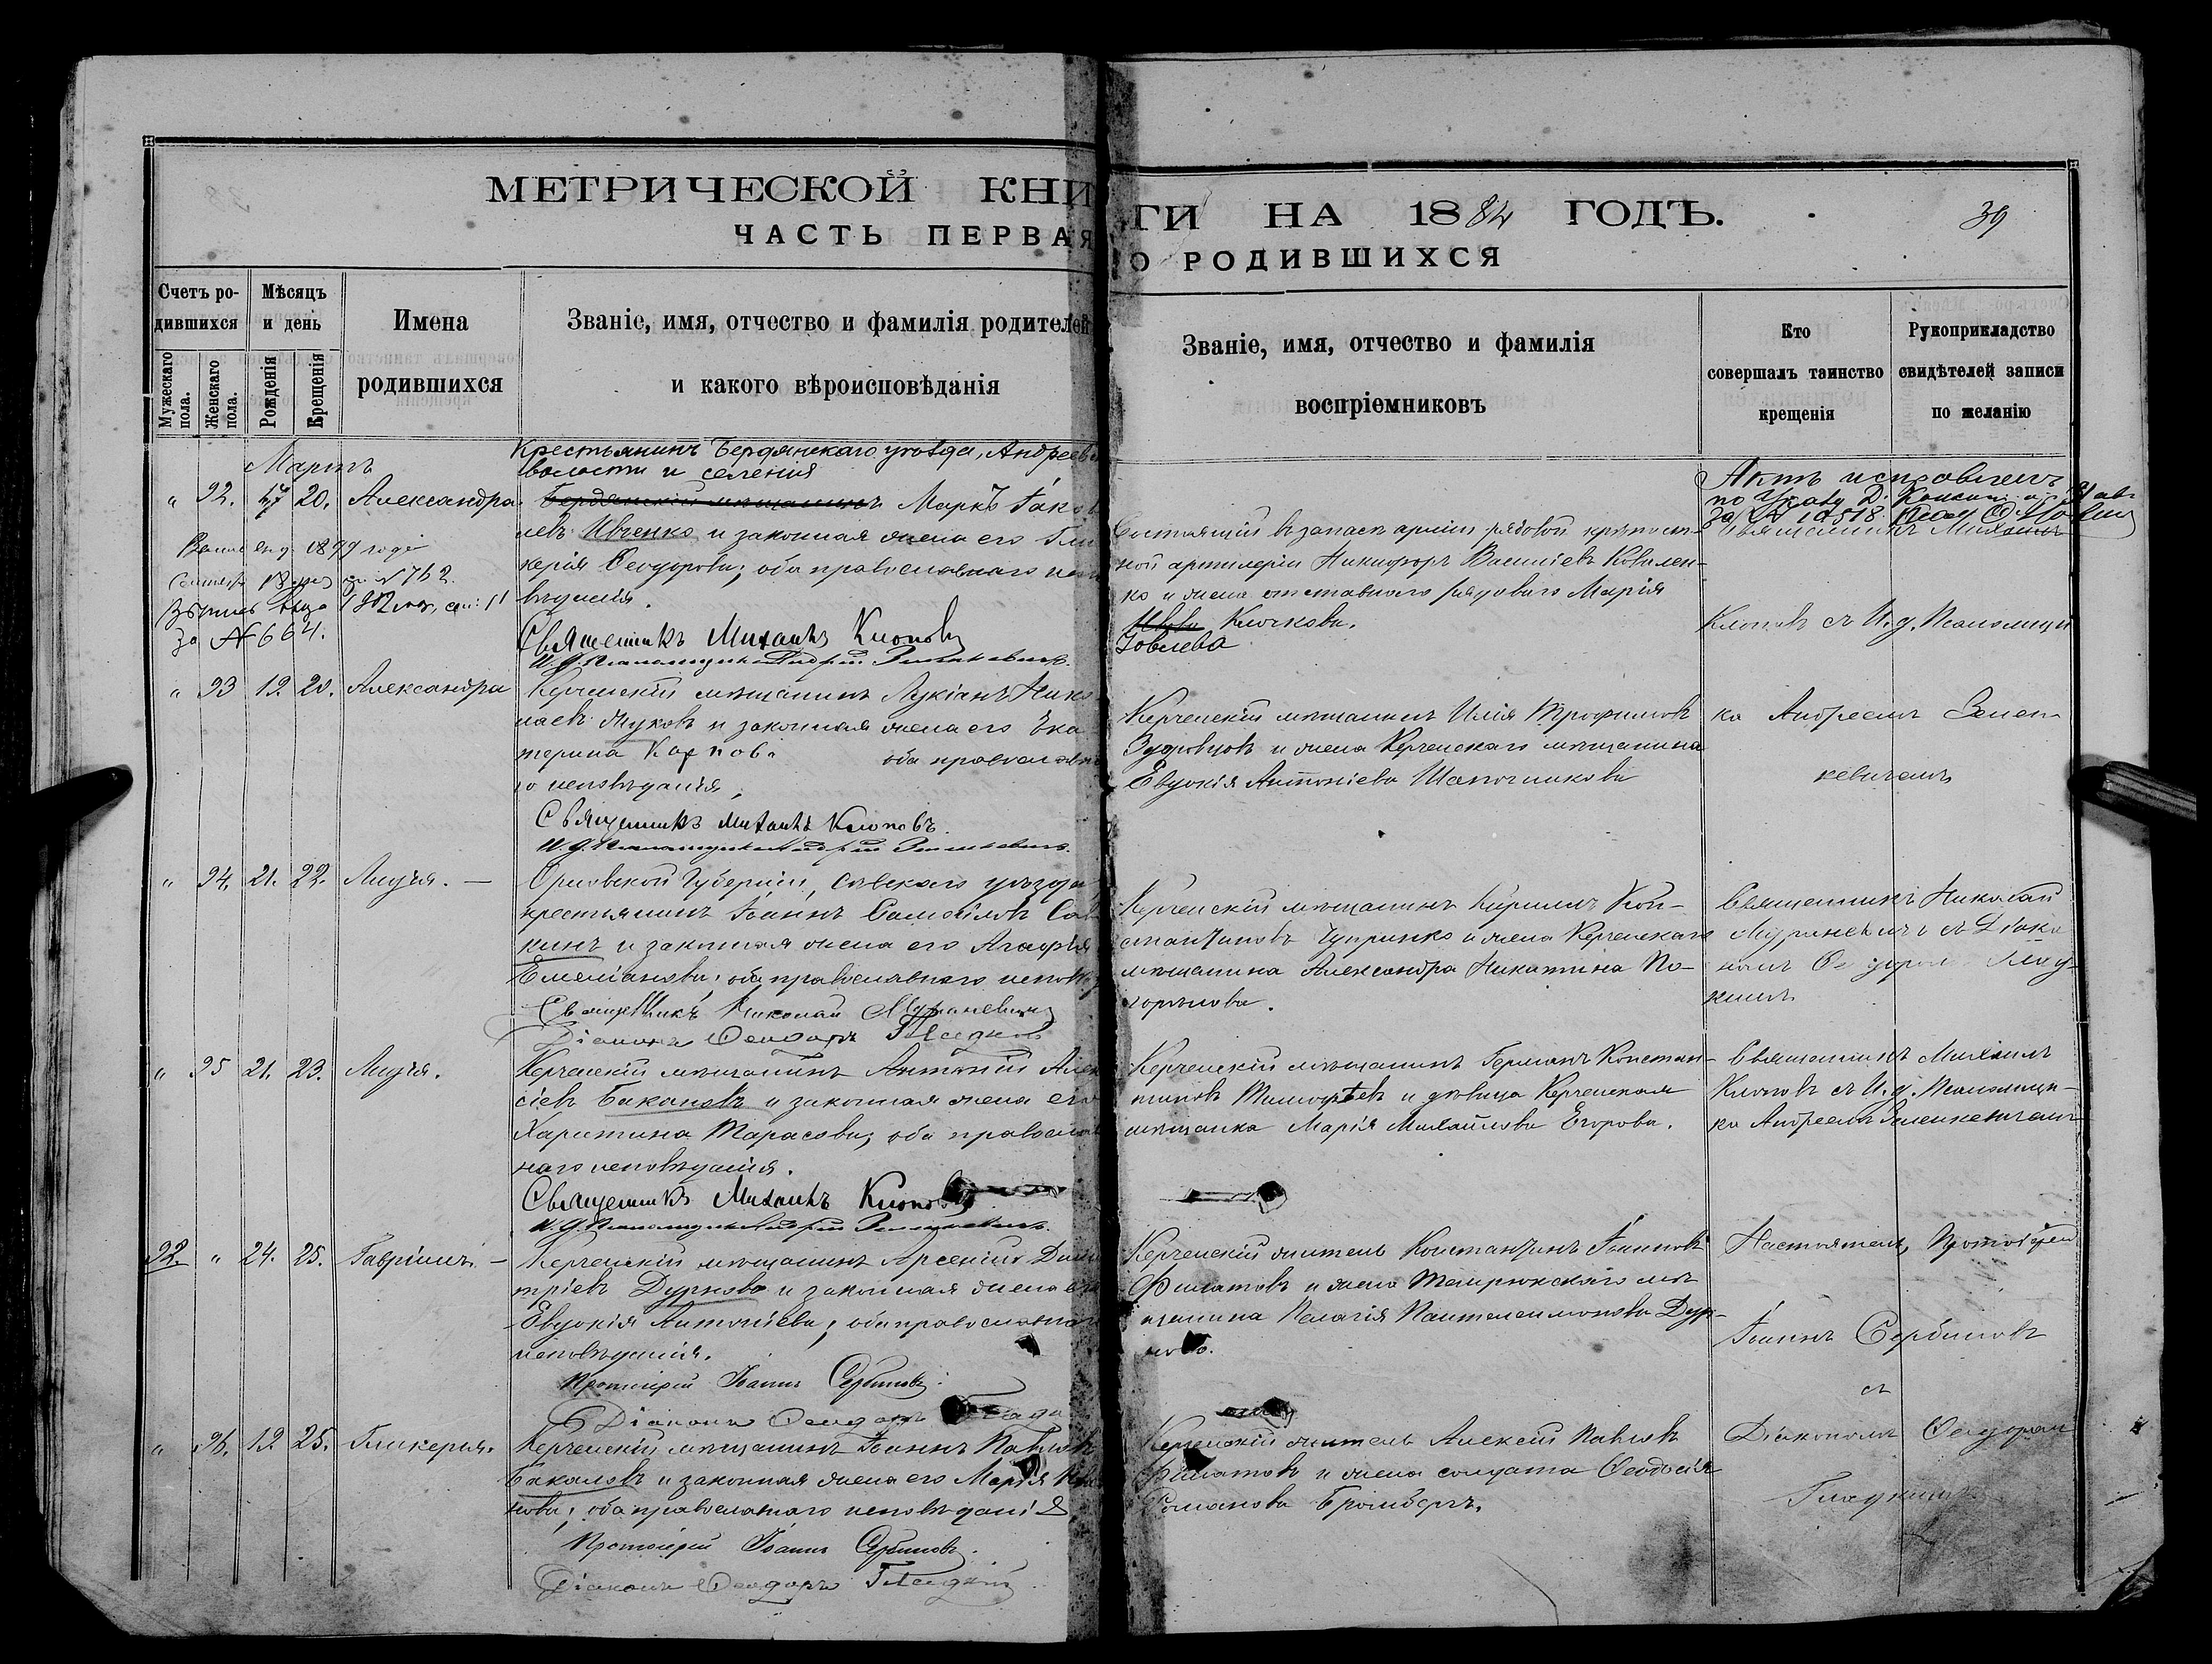 МЕТРИЧЕСКОЙ КНИГИ НА 1884 ГОДЪ.
39
ЧАСТЬ ПЕРВАЯ О РОДИВШИХСЯ
Счетъ родившихся
Мужескаго пола.
Женскаго пола.
Мѣсяцъ и день
Рожденія
Крещенія
Имена родившихся
Званіе, имя, отчество и фамилія родителей
и какого вѣроисповѣданія
Званіе, имя, отчество и фамилія
воспріемниковъ
Кто
совершалъ таинство
крещенія
Рукоприкладство
свидѣтелей записи
по желанію
Мартъ
" 92. 17 20. Александра.
Крестьянинъ Бердянскаго уѣзда, Андреев
волости и селенія
Бердянскій мѣщанинъ Маркъ Іаков
левъ Ивченко и законная жена его Гли
керія Ѳеодорова; оба православнаго испо
вѣданія.
Священникъ Михаилъ Клоповъ
И. д. Псаломщика Андрей
Состоящій въ запасѣ арміи рядовой крѣпост-
ной артилеріи Никифоръ Василіевъ Ковален-
ко и жена отставного рядового Марія
Клочкова.
Іовлева
Актъ исправленъ
по Указу Д. Консист. 31 авг
за № 10518
Священникъ Михаилъ
Клоповъ съ И. д. Псаломщи
ка Андреемъ Зелен
кевичемъ
1899 года
за № 762.
за № 664.
" 93 19. 20. Александра
Керченскій мѣщанинъ Лукіанъ Нико
лаевъ Жуковъ и законная жена его Ека
терина Карпова оба православна
го исповѣданія,
Священникъ Михаилъ Клоповъ.
И. д. Псаломщика Андрей
Керченскій мѣщанинъ Илія Трофимовъ
и жена Керченскаго мѣщанина
Евдокія Антоніева Шапочникова
" 94. 21. 22. Лидія. —
Орловской Губерніи, Сѣвскаго уѣзда
крестьянинъ Іоаннъ Самойловъ Сав
кинъ и законная жена его Агафія
Емеліанова; оба православнаго исповѣд
Священникъ Николай
Діаконъ Ѳеодоръ
Керченскій мѣщанинъ Кириллъ Кон-
стантиновъ Чупринко и жена Керченскаго
мѣщанина Александра Никитина По-
горѣлова.
Священникъ Николай
съ Діако
номъ Ѳеодоромъ Глад-
кимъ
" 95 21. 23. Лидія.
Керченскій мѣщанинъ Антоній Алек
сіевъ Бакановъ и законная жена его
Харитина Тарасова; оба православ
наго исповѣданія.
Священникъ Михаилъ Клоповъ
И. д. Псаломщика Андрей
Керченскій мѣщанинъ Германъ Констан-
тиновъ Тимофѣевъ и дѣвица Керченская
мѣщанка Марія Михайлова Егорова.
Священникъ Михаилъ
Клоповъ съ И. д. Псаломщи-
ка Андреемъ Зеленкевичемъ
92. " 24. 25. Гавріилъ. —
Керченскій мѣщанинъ Арсеній Дими
тріевъ Дурново и законная жена его
Евдокія Антоніева; оба православнаго
исповѣданія.
Протоіерей Іоаннъ Сербиновъ.
Діаконъ Ѳеодоръ
Керченскій житель Константинъ Іоанновъ
Филатовъ и жена Темрюкскаго мѣ
щанина Пелагія Пантелеимонова Дур-
ново.
Настоятель, Протоіерей
Іоаннъ Сербиновъ
съ
Діакономъ Ѳеодоромъ
Гладкимъ
" 96. 19. 25. Гликерія.
Керченскій мѣщанинъ Іоаннъ Павловъ
Бакаловъ и законная жена его Марія
нова; оба православнаго исповѣданія
Протоіерей Іоаннъ Сербиновъ.
Діаконъ Ѳеодоръ Гладкій
Керченскій житель Алексій Павловъ
Филатовъ и жена солдата Ѳеодосія
Романова Бромбергъ.